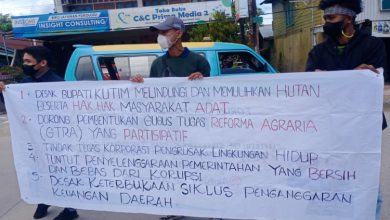 INSIGHT CONSULTING
Toko Buku
C&C Prima Media 2
1. DESAK BUPATI KUTIM MELINDUNGI DAN MEMULIHKAN HUTAN
BESERTA HAK HAK MASYARAKAT ADAT.
2. DORONG PEMBENTUKAN GUGUS TUGAS REFORMA AGRARIA
(GTRA) YANG PARTISIPATIF
3. TINDAK TEGAS KORPORASI PENGRUSAK LINGKUNGAN HIDUP
4. TUNTUT PENYELENGGARAAN PEMERINTAHAN YANG BERSIH
DAN BEBAS DARI KORUPSI
5. DESAK KETERBUKAAN SIKLUS PENGANGGARAN
KEUANGAN DAERAH.